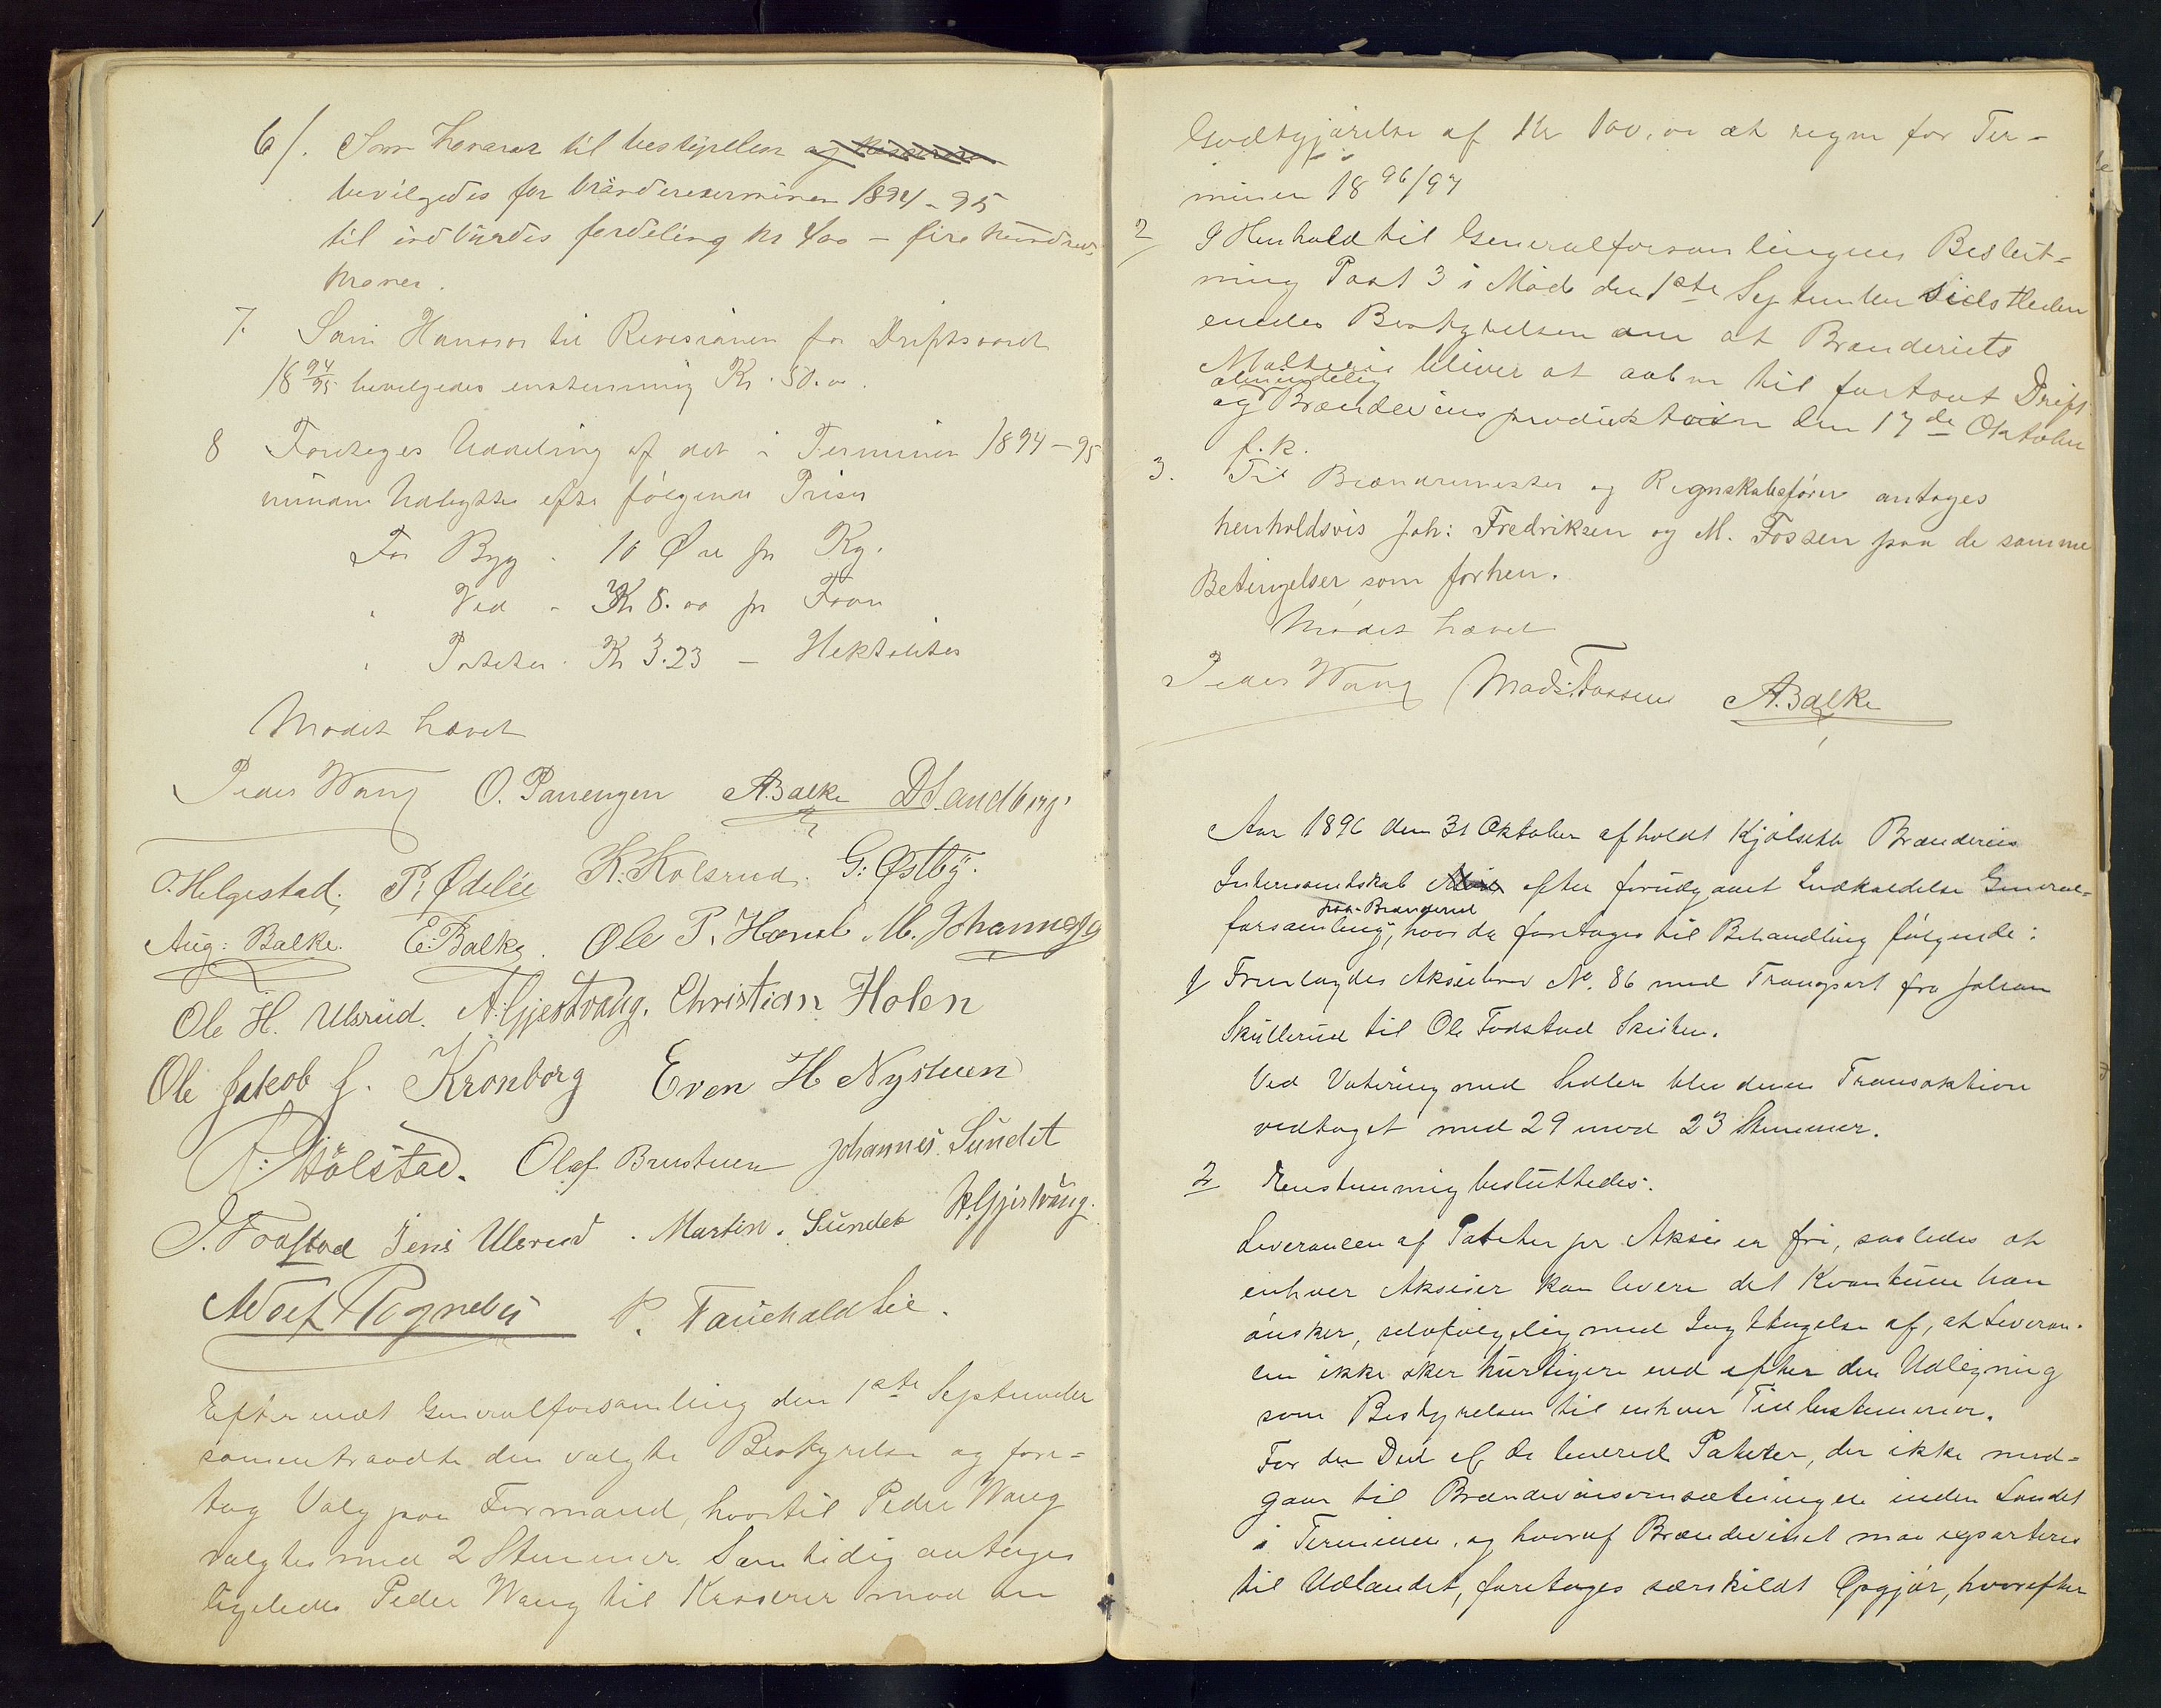 6/. Som Honorar til bestyrelsen og
bevilgedes for brænderiterminen 1894-95
til indbürdes fordeling Kr 400 - fire hündred
Kroner.
7. Som Honorar til Revisionen for Driftsaaret
18 94/95 bevilgedes enstemmig Kr. 50.00.
8 Foretoges Uddeling af det i Terminen 1894-95
Udbytte efter følgende Priser
For Byg - 10 Øre pr Kg.
" Ved - Kr 8.00 pr Favn
" Poteter Kr 3.23 - Hektoliter
Mødet hævet
Peder Wang O. Panengen A. Balke D Sandberg.
O. Helgestad. P. Ødelie K. Kolsrud. G. Østby.
Aug: Balke. E. Balke. Ole P. M. Johannes
Ole H. Ulsrud. A. Gjestvang. Christian Holen
Ole Jakob J. Kronborg Even H Nystuen
Olaf Brustuen Johannes Sundet
J. Fodstad Jens Ulsrud. Martin. Sundet H. Gjestvang.
Adolf Rogneby P. Fauchaldlie.
Efter endt Generalforsamling den 1ste September
samentraadte den valgte Bestyrelse og fore=
tog Valg paa Formand, hvortil Peder Wang
valgtes med 2 Stemmer. Samtidig antoges
ligeledes Peder Wang til Kasserer mod en
Godtgjørelse af Kr 100,00 at regne for Ter=
minen 18 96/97
2 I Henhold til Generalforsamlingens Beslut=
ning Post 3 i Møde den 1ste September sidstleden
enedes Bestyrelsen om at Brænderiets
Malteri bliver at aabne til fortsat Drift
almindelig
og Brændevinsproduktion den 17de Oktober
f.k.
3. Til Brændemester og Regnskabsfører antoges
henholdsvis Joh: Fredriksen og M. Fossen paa de samme
Betingelser som forhen.
Mødet hævet
Peder Wang Mads. Fossen A. Balke
Aar 1896 den 31 Oktober afholdt Kjølsets Brænderies
Interessentskab efter forudgaaet Indkaldelse General=
paa Brænderiet
forsamling, hvor da foretoges til Behandling følgende:
1 Fremlagdes Aksiebrev No. 86 med Transport fra Johan
Skullerud til Ole Fodstad Skisten.
Ved Votering med Sedler blev denne Transaktion
vedtaget med 29 mod 23 Stemmer.
2 Enstemmig besluttedes:
Leverancen af Poteter pr Aksie er fri, saaledes at
enhver Aksieier kan levere det Kvantum han
ønsker, selvfølgelig med Iagttagelse af, at Leveran-
cen ikke sker hürtigere end efter den Udligning
som Bestyrelsen til enhver Tid bestemmer.
For den Del af de leverede Poteter, der ikke med=
gaar til Brændevinsomsætningen inden Landet
i Terminen, og hvoraf Brændevinet maa exporteres
til Udlandet, foretages særskildt Opgjør, hvorefter